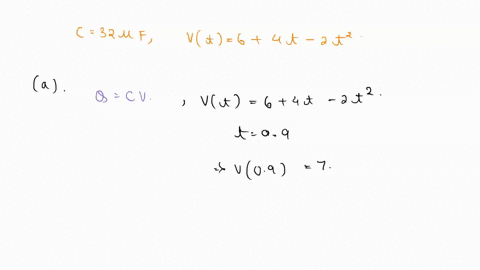 C = 32 μF, V(t) = 6 + 4t - 2t².
(a). Q = CV. , V(t) = 6 + 4t - 2t².
t = 0.9
⇒ V(0.9) = 7.